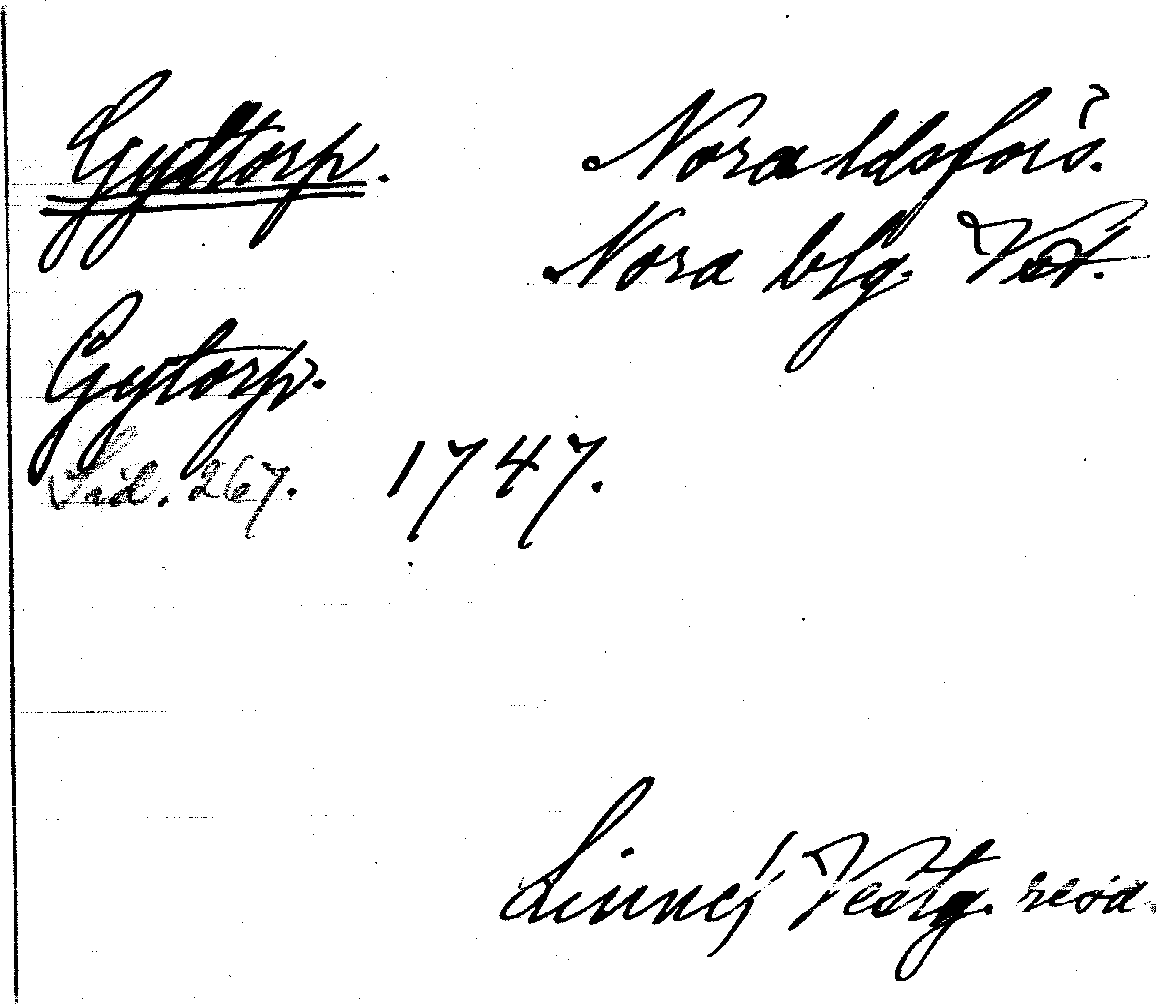 Gyttorp.
Nora ldsförs.
Nora blg.
Gytorp.
Sid. 267. 1747.
Linnés Vestg. resa.